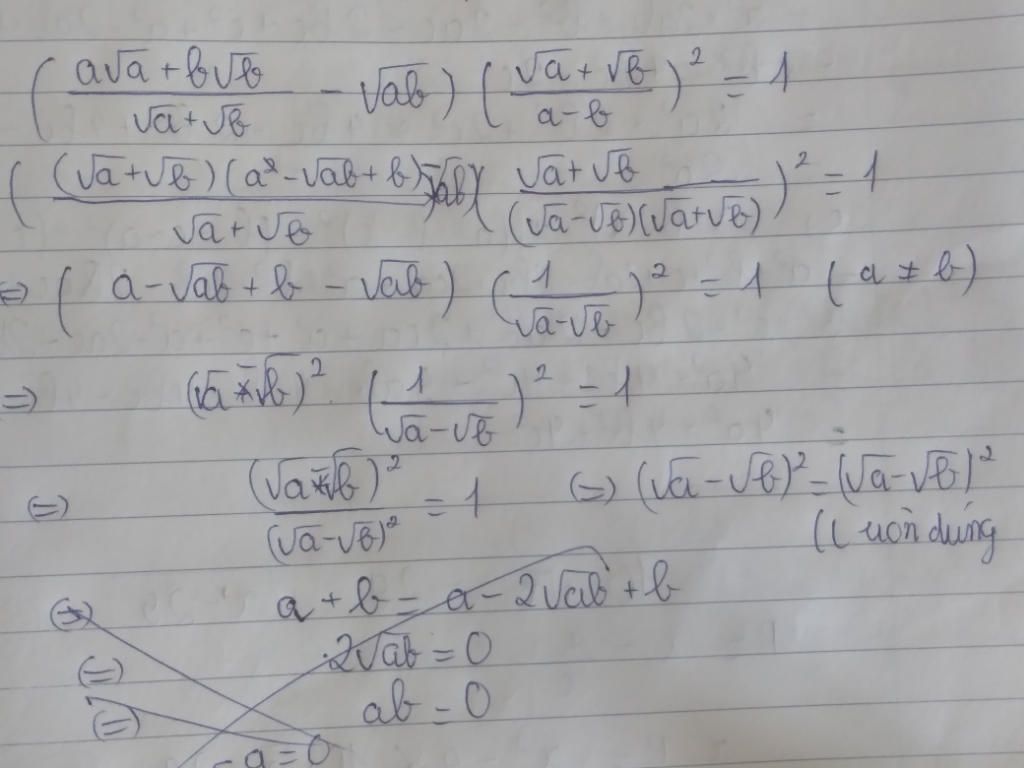 ( (a√a + b√b)/(√a + √b) - √ab ) ( (√a + √b)/(a - b) )² = 1
( ((√a + √b)(a² - √ab + b))/(√a + √b) - √ab ) ( (√a + √b)/((√a - √b)(√a + √b)) )² = 1
⇔ ( a - √ab + b - √ab ) ( 1/(√a - √b) )² = 1 ( a ≠ b )
⇒ (√a - √b)² . ( 1/(√a - √b) )² = 1
⇔ (√a - √b)²/(√a - √b)² = 1 ⇔ (√a - √b)² = (√a - √b)²
(Luôn đúng
⇔ a + b = a - 2√ab + b
⇔ 2√ab = 0
⇔ ab = 0
a = 0